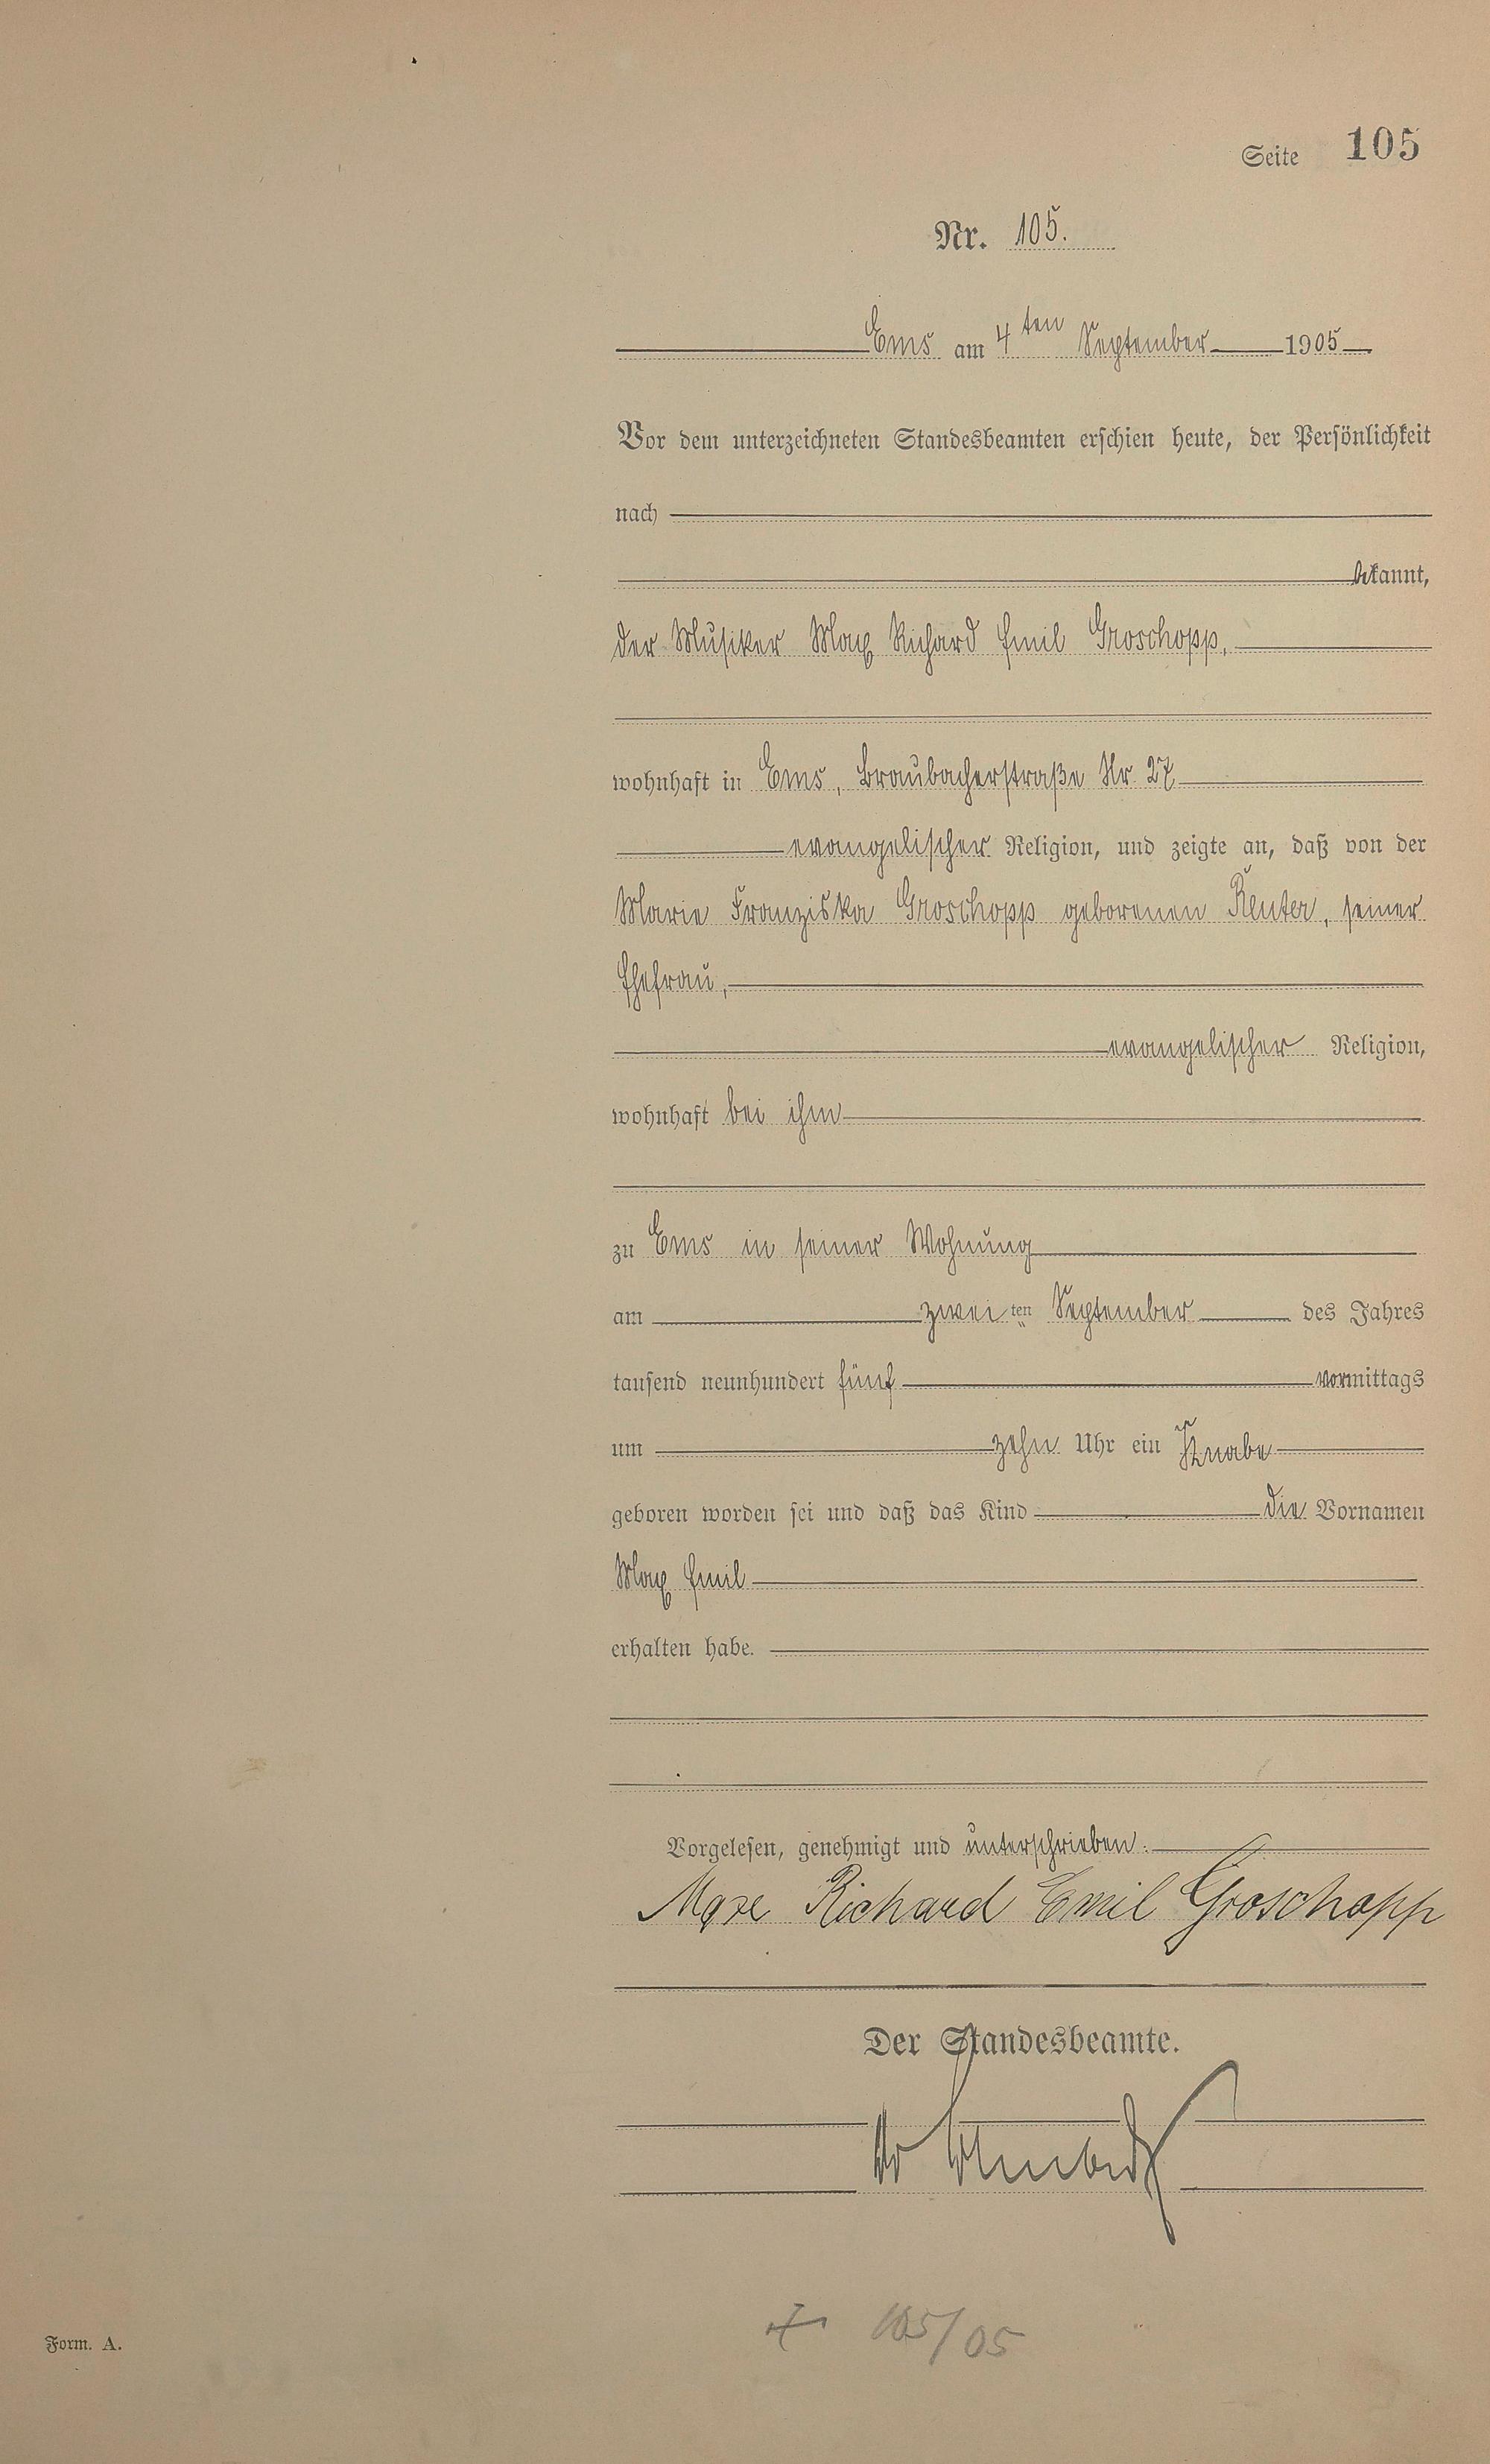 Seite 105
Nr. 105.
Ems am 4ten September 1905
Vor dem unterzeichneten Standesbeamten erschien heute, der Persönlichkeit
nach
bekannt,
der Musiker Max Richard Emil Groschopp,
wohnhaft in Ems, Braubacherstraße Nr. 27
evangelischer Religion, und zeigte an, daß von der
Marie Franziska Groschopp geborenen Reuter, seiner
Ehefrau,
evangelischer Religion,
wohnhaft bei ihm
zu Ems in seiner Wohnung
am zweiten September des Jahres
tausend neunhundert fünf vormittags
um zehn Uhr ein Knabe
geboren worden sei und daß das Kind die Vornamen
Max Emil
erhalten habe.
Vorgelesen, genehmigt und unterschrieben:
Max Richard Emil Groschopp
Der Standesbeamte.
105/05
Form. A.